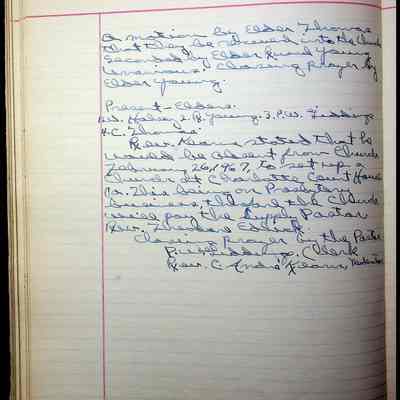 a motion by Elder Thomas
that they be received into the Church
seconded by Elder Young
Unanimous. Closing prayer by
Elder Young.
Present - Elders:
W. Halsey, J. R. Young, J. P. W. Giddings,
H. C. Thomas.
Rev. Kearns stated that he
would be absent from Church
February 26, 1967, to set up a
Church at Charlotte Court House
Va. This being on Presbytery
business, therefore the Church
will pay the Supply Pastor
Rev.
Closing Prayer by the Pastor
Giddings, Clerk
Rev. C. André Kearns, Moderator